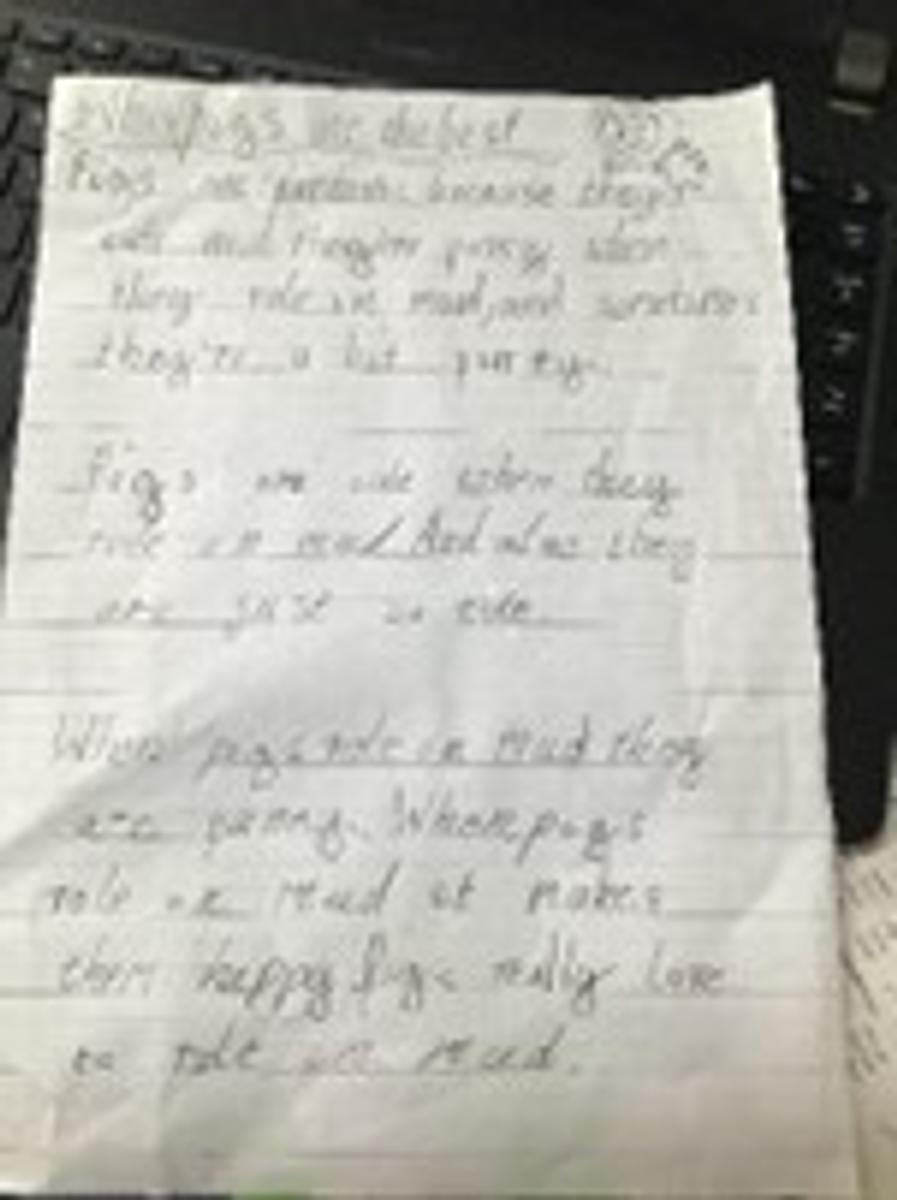 Why pigs are the best
Pigs are because they're
cute and they're funny when
they role in mud, and sometimes
they're a bit funny.
Pigs are cute when they
role in mud And also they
are just so cute
When pigs role in mud they
are funny. When pigs
role in mud it makes
them happy Pigs really love
to role in mud.